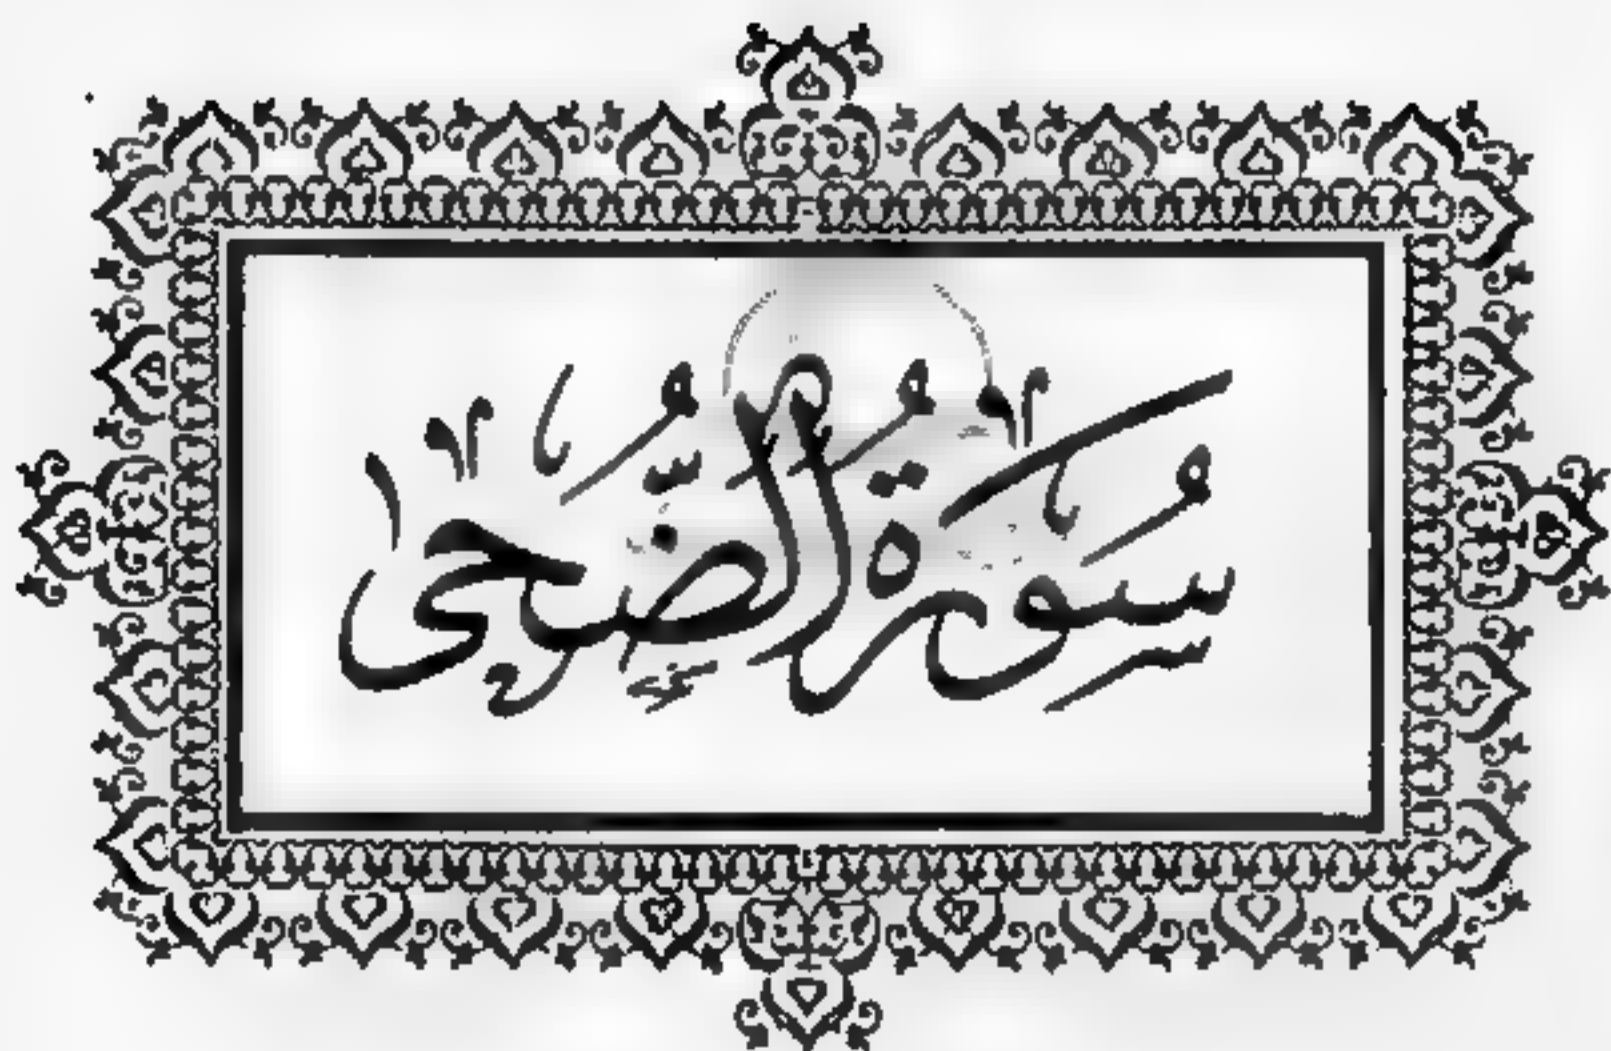 سُورَةُ الضُّحَى